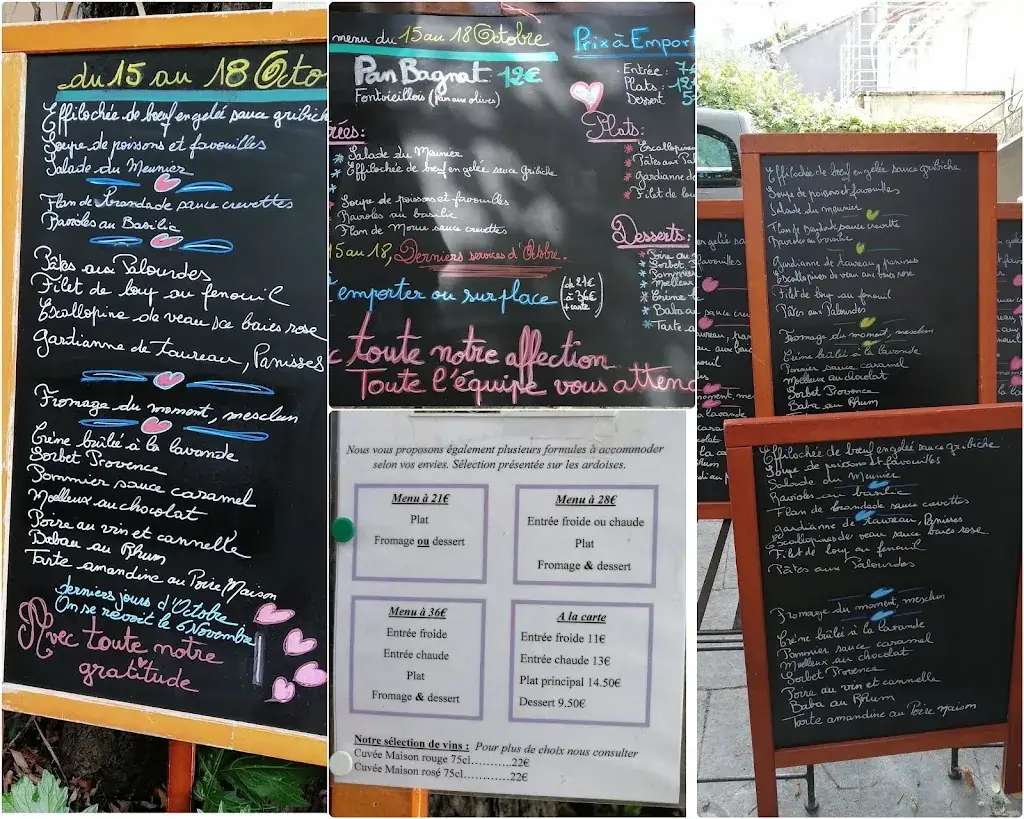 du 15 au 18 Octo
Effilochée de bœuf en gelée sauce gribich
Soupe de poissons et favouilles
Salade du Meunier
Flan de Brandade sauce crevettes
Ravioles au Basilic
Pâtes aux Palourdes
Filet de loup au fenouil
Escallopine de veau sce baies rose
Gardianne de taureau, Panisses
Fromage du moment, mesclun
Crème brûlée à la lavande
Sorbet Provence
Pommier sauce caramel
Moelleux au chocolat
Poire au vin et cannelle
Baba au Rhum
Tarte amandine au Poire Maison
derniers jours d'Octobre
On se revoit le 6 Novembre
Avec toute notre
gratitude
menu du 15 au 18 Octobre
Prix à Empor
Pan Bagnat 12€
Fontvieillois (pan aux olives)
Entrée: 7
Plats: 12
Dessert 5
rées:
Salade du Meunier
Effilochée de bœuf en gelée sauce Gribiche
Soupe de poissons et favouilles
Ravioles au basilic
Flan de Morue sauce crevettes
Plats:
Escallopine
Pâtes aux Pal
Gardianne d
Filet de lou
15 au 18, Derniers services d'Octobre.
emporter ou sur place
(de 21€
à 36€
+ carte)
Desserts:
Poire au
Sorbet
Pommier
Moelleux
Crème
Baba a
Tarte a
c toute notre affection
Toute l'équipe vous atten
Nous vous proposons également plusieurs formules à accommoder
selon vos envies. Sélection présentée sur les ardoises.
Menu à 21€
Plat
Fromage ou dessert
Menu à 28€
Entrée froide ou chaude
Plat
Fromage & dessert
Menu à 36€
Entrée froide
Entrée chaude
Plat
Fromage & dessert
A la carte
Entrée froide 11€
Entrée chaude 13€
Plat principal 14.50€
Dessert 9.50€
Notre sélection de vins : Pour plus de choix nous consulter
Cuvée Maison rouge 75cl............22€
Cuvée Maison rosé 75cl............22€
Effilochée de bœuf en gelée sauce gribiche
Soupe de poissons et favouilles
Salade du meunier
Flan de Brandade sauce crevette
Ravioles au basilic
Gardianne de taureau, panisses
Escallopines de veau aux baies rose
Filet de loup au fenouil
Pâtes aux Palourdes
Fromage du moment, mesclun
Crème brûlée à la lavande
Pommier sauce caramel
Moelleux au chocolat
Sorbet Provence
Baba au Rhum
Effilochée de bœuf en gelée sauce gribiche
Soupe de poissons et favouilles
Salade du Meunier
Ravioles au basilic
Flan de brandade sauce crevettes
gardianne de taureau, Panisses
Escallopines de veau sauce baies rose
Filet de loup au fenouil
Pâtes aux Palourdes
Fromage du moment, mesclun
Crème brûlée à la lavande
Pommier sauce caramel
Moelleux au chocolat
Sorbet Provence
Poire au vin et cannelle
Baba au Rhum
Tarte amandine au Poire Maison